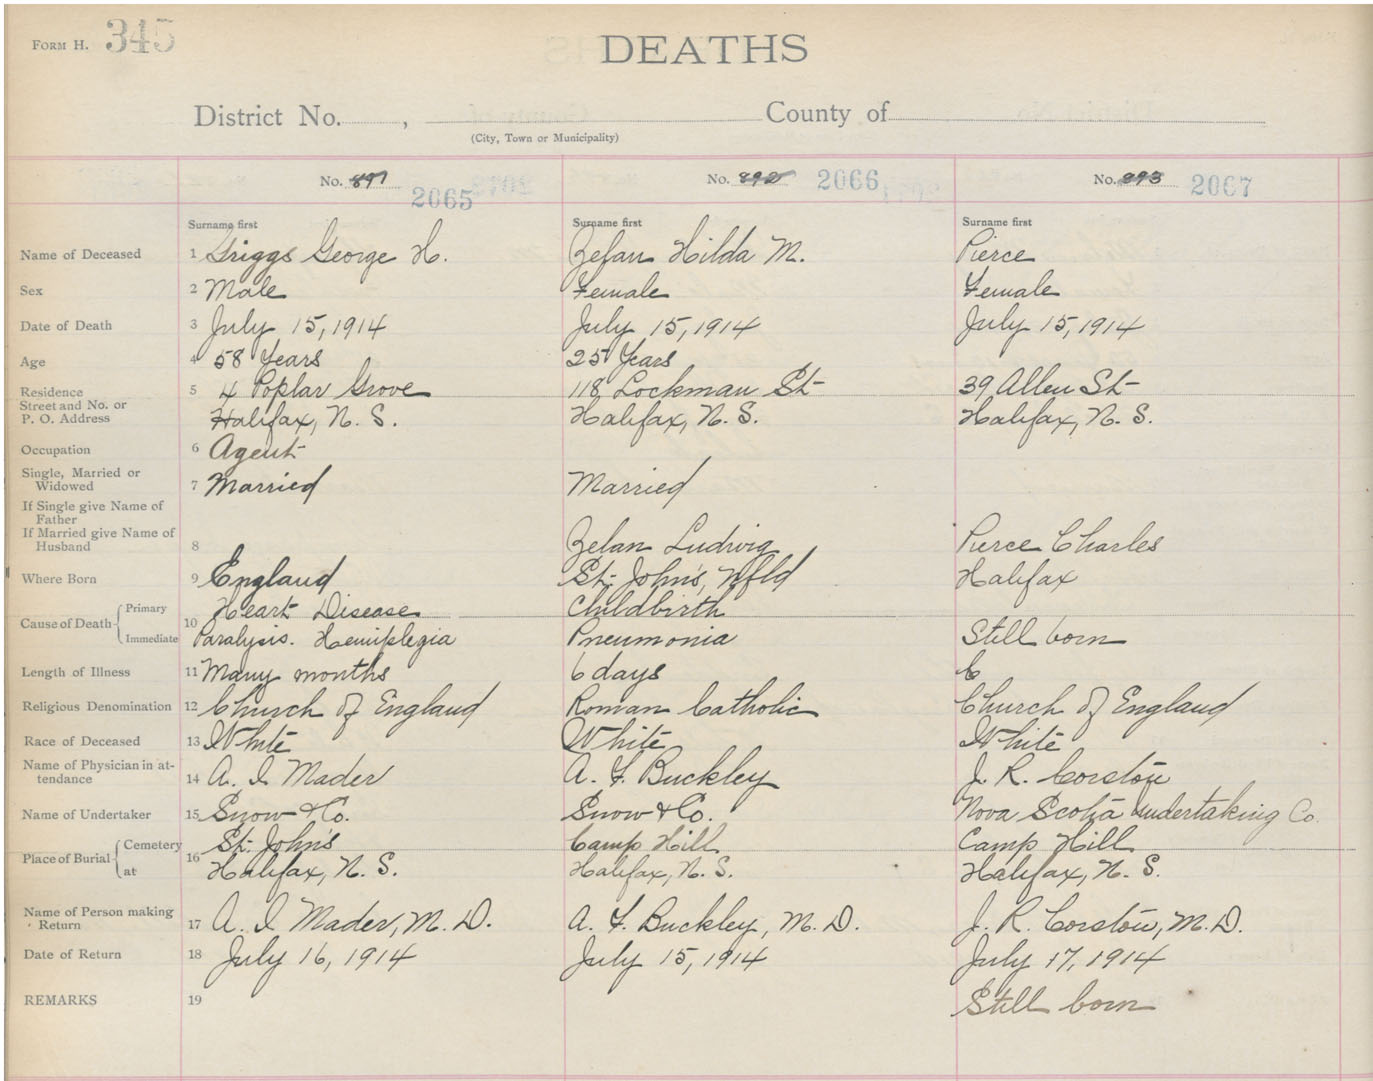 FORM H. 345
DEATHS
District No. , County of
(City, Town or Municipality)
No. 891 2065 No. 892 2066 No. 893 2067
Surname first Surname first Surname first
Name of Deceased 1 Griggs George H. Zefan Hilda M. Pierce
Sex 2 Male Female Female
Date of Death 3 July 15, 1914 July 15, 1914 July 15, 1914
Age 4 58 Years 25 Years
Residence 5 4 Poplar Grove 118 Lockman St 39 Allen St
Street and No. or
P. O. Address Halifax, N. S. Halifax, N. S. Halifax, N. S.
Occupation 6 Agent
Single, Married or
Widowed 7 Married Married
If Single give Name of
Father
If Married give Name of
Husband 8 Zelan Ludwig Pierce Charles
Where Born 9 England St. John's, Nfld Halifax
Cause of Death Primary Heart Disease Childbirth
10 Immediate Paralysis. Hemiplegia Pneumonia Still born
Length of Illness 11 Many months 6 days
Religious Denomination 12 Church of England Roman Catholic Church of England
Race of Deceased 13 White White White
Name of Physician in at-
tendance 14 A. I Mader A. F. Buckley J. R. Corston
Name of Undertaker 15 Snow & Co. Snow & Co. Nova Scotia Undertaking Co.
Place of Burial Cemetery St. John's Camp Hill Camp Hill
16 at Halifax, N. S. Halifax, N. S. Halifax, N. S.
Name of Person making
Return 17 A. I Mader, M. D. A. F. Buckley, M. D. J. R. Corston, M. D.
Date of Return 18 July 16, 1914 July 15, 1914 July 17, 1914
REMARKS 19 Still born